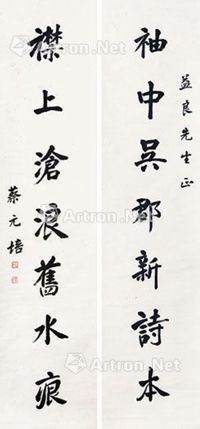 益良先生正
袖中吳郡新詩本
襟上滄浪舊水痕
蔡元培
Artron.Net